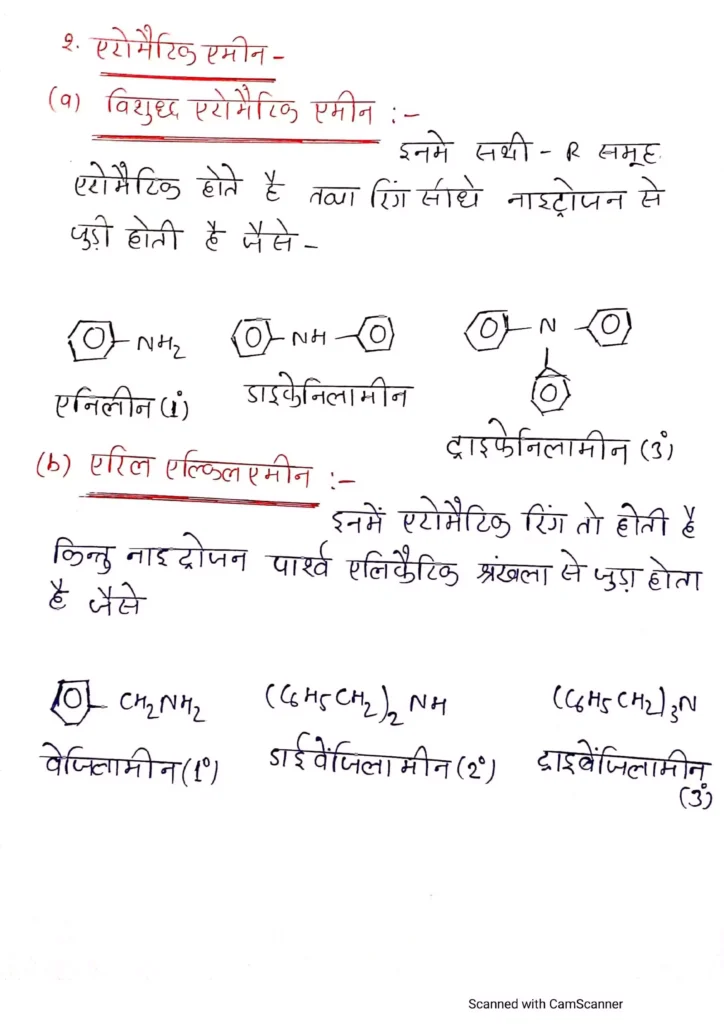 2. एरोमैटिक एमीन -
(a) विशुध्द एरोमैटिक एमीन :-
इनमे सभी - R समूह
एरोमैटिक होते है तथा रिंग सीधे नाइट्रोजन से
जुड़ी होती है जैसे -
NH2 NH N
एनिलीन (1°) डाइफेनिलामीन
ट्राइफेनिलामीन (3°)
(b) एरिल एल्किल एमीन :-
इनमें एरोमैटिक रिंग तो होती है
किन्तु नाइट्रोजन पार्श्व एलिफैटिक श्रंखला से जुड़ा होता
है जैसे
CH2NH2 (C6H5CH2)2 NH (C6H5CH2)3N
वेंजिलामीन (1°) डाईवेंजिलामीन (2°) ट्राइबेंजिलामीन
(3°)
Scanned with CamScanner